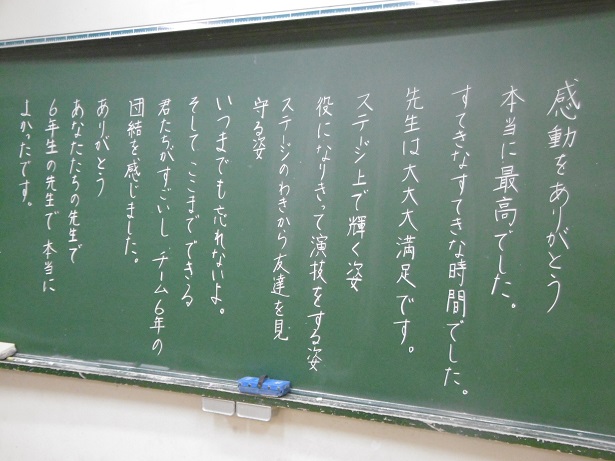 感動をありがとう
本当に最高でした。
すてきなすてきな時間でした。
先生は大大大満足です。
ステージ上で輝く姿
役になりきって演技をする姿
ステージのわきから友達を見
守る姿
いつまでも忘れないよ。
そして ここまでできる
君たちがすごいし チーム6年の
団結を感じました。
ありがとう
あなたたちの先生で
6年生の先生で 本当に
よかったです。